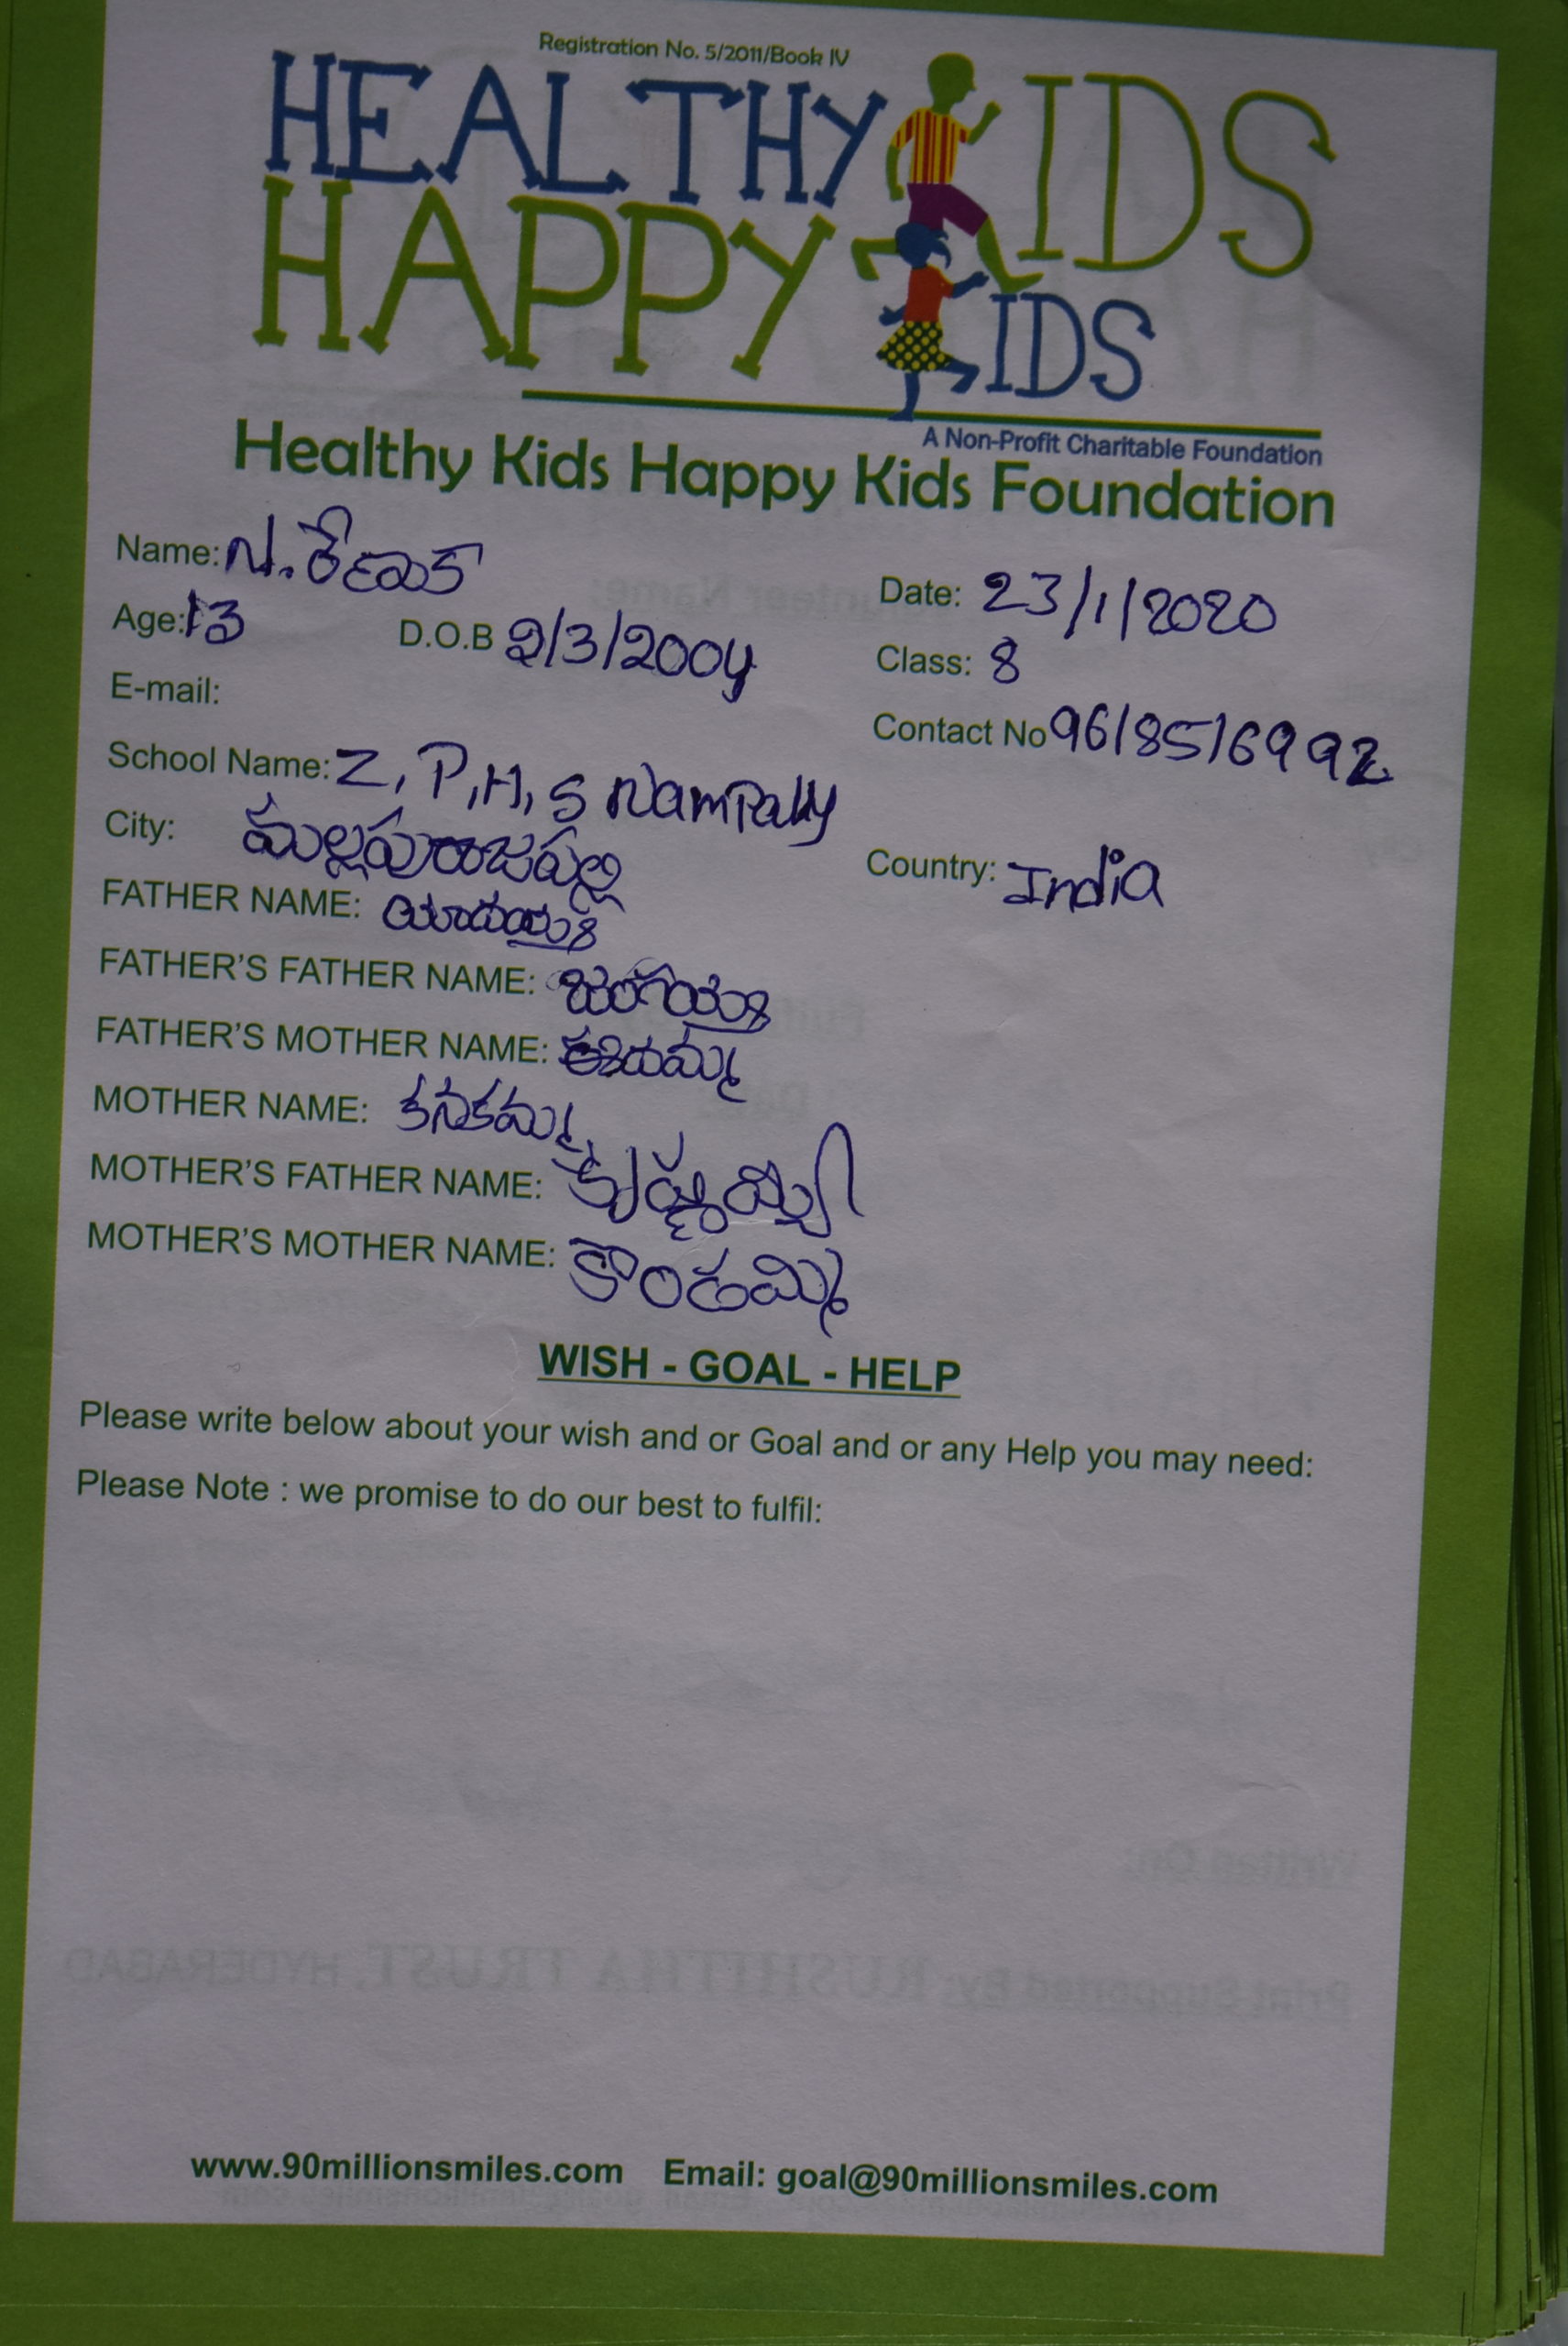 Registration No. 5/2011/Book IV
HEALTHY KIDS
HAPPY KIDS
A Non-Profit Charitable Foundation
Healthy Kids Happy Kids Foundation
Name: N. రేణుక
Date: 23/1/2020
Age: 13 D.O.B 2/3/2004
Class: 8
E-mail:
Contact No 9618516992
School Name: Z, P, H, S Nampally
City: మల్లపురాజపల్లి
Country: India
FATHER NAME: యాదయ్య
FATHER'S FATHER NAME: జంగయ్య
FATHER'S MOTHER NAME:
MOTHER NAME: కనకమ్మ
MOTHER'S FATHER NAME:
MOTHER'S MOTHER NAME:
WISH - GOAL - HELP
Please write below about your wish and or Goal and or any Help you may need:
Please Note : we promise to do our best to fulfil:
www.90millionsmiles.com Email: goal@90millionsmiles.com